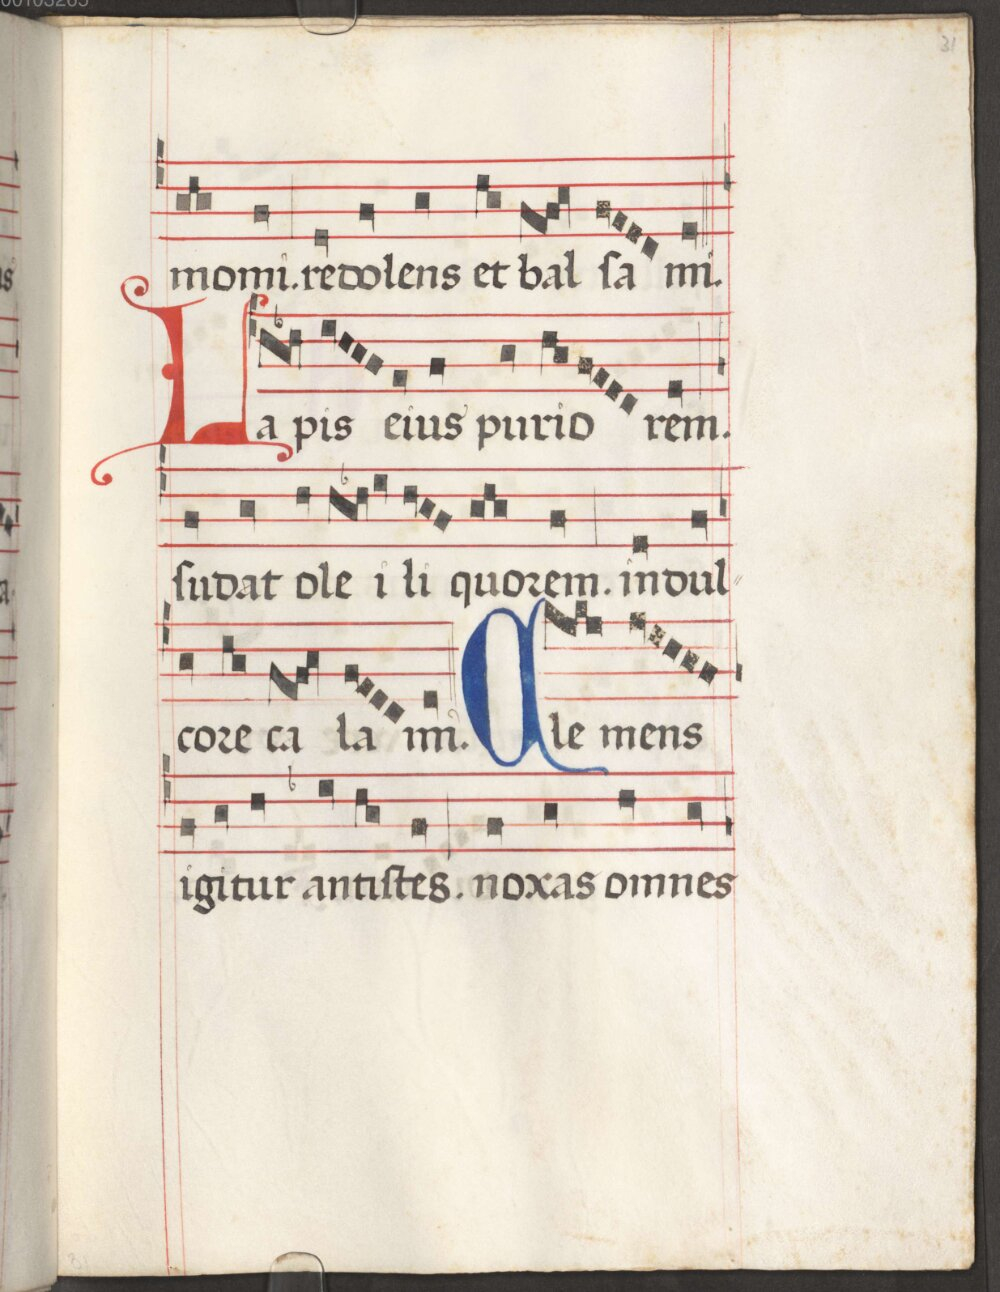 00103265
31
momi. redolens et bal sa mi.
La pis eius purio rem.
sudat ole i li quorem. indul
core ca la mi. Ale mens
igitur antistes. noxas omnes